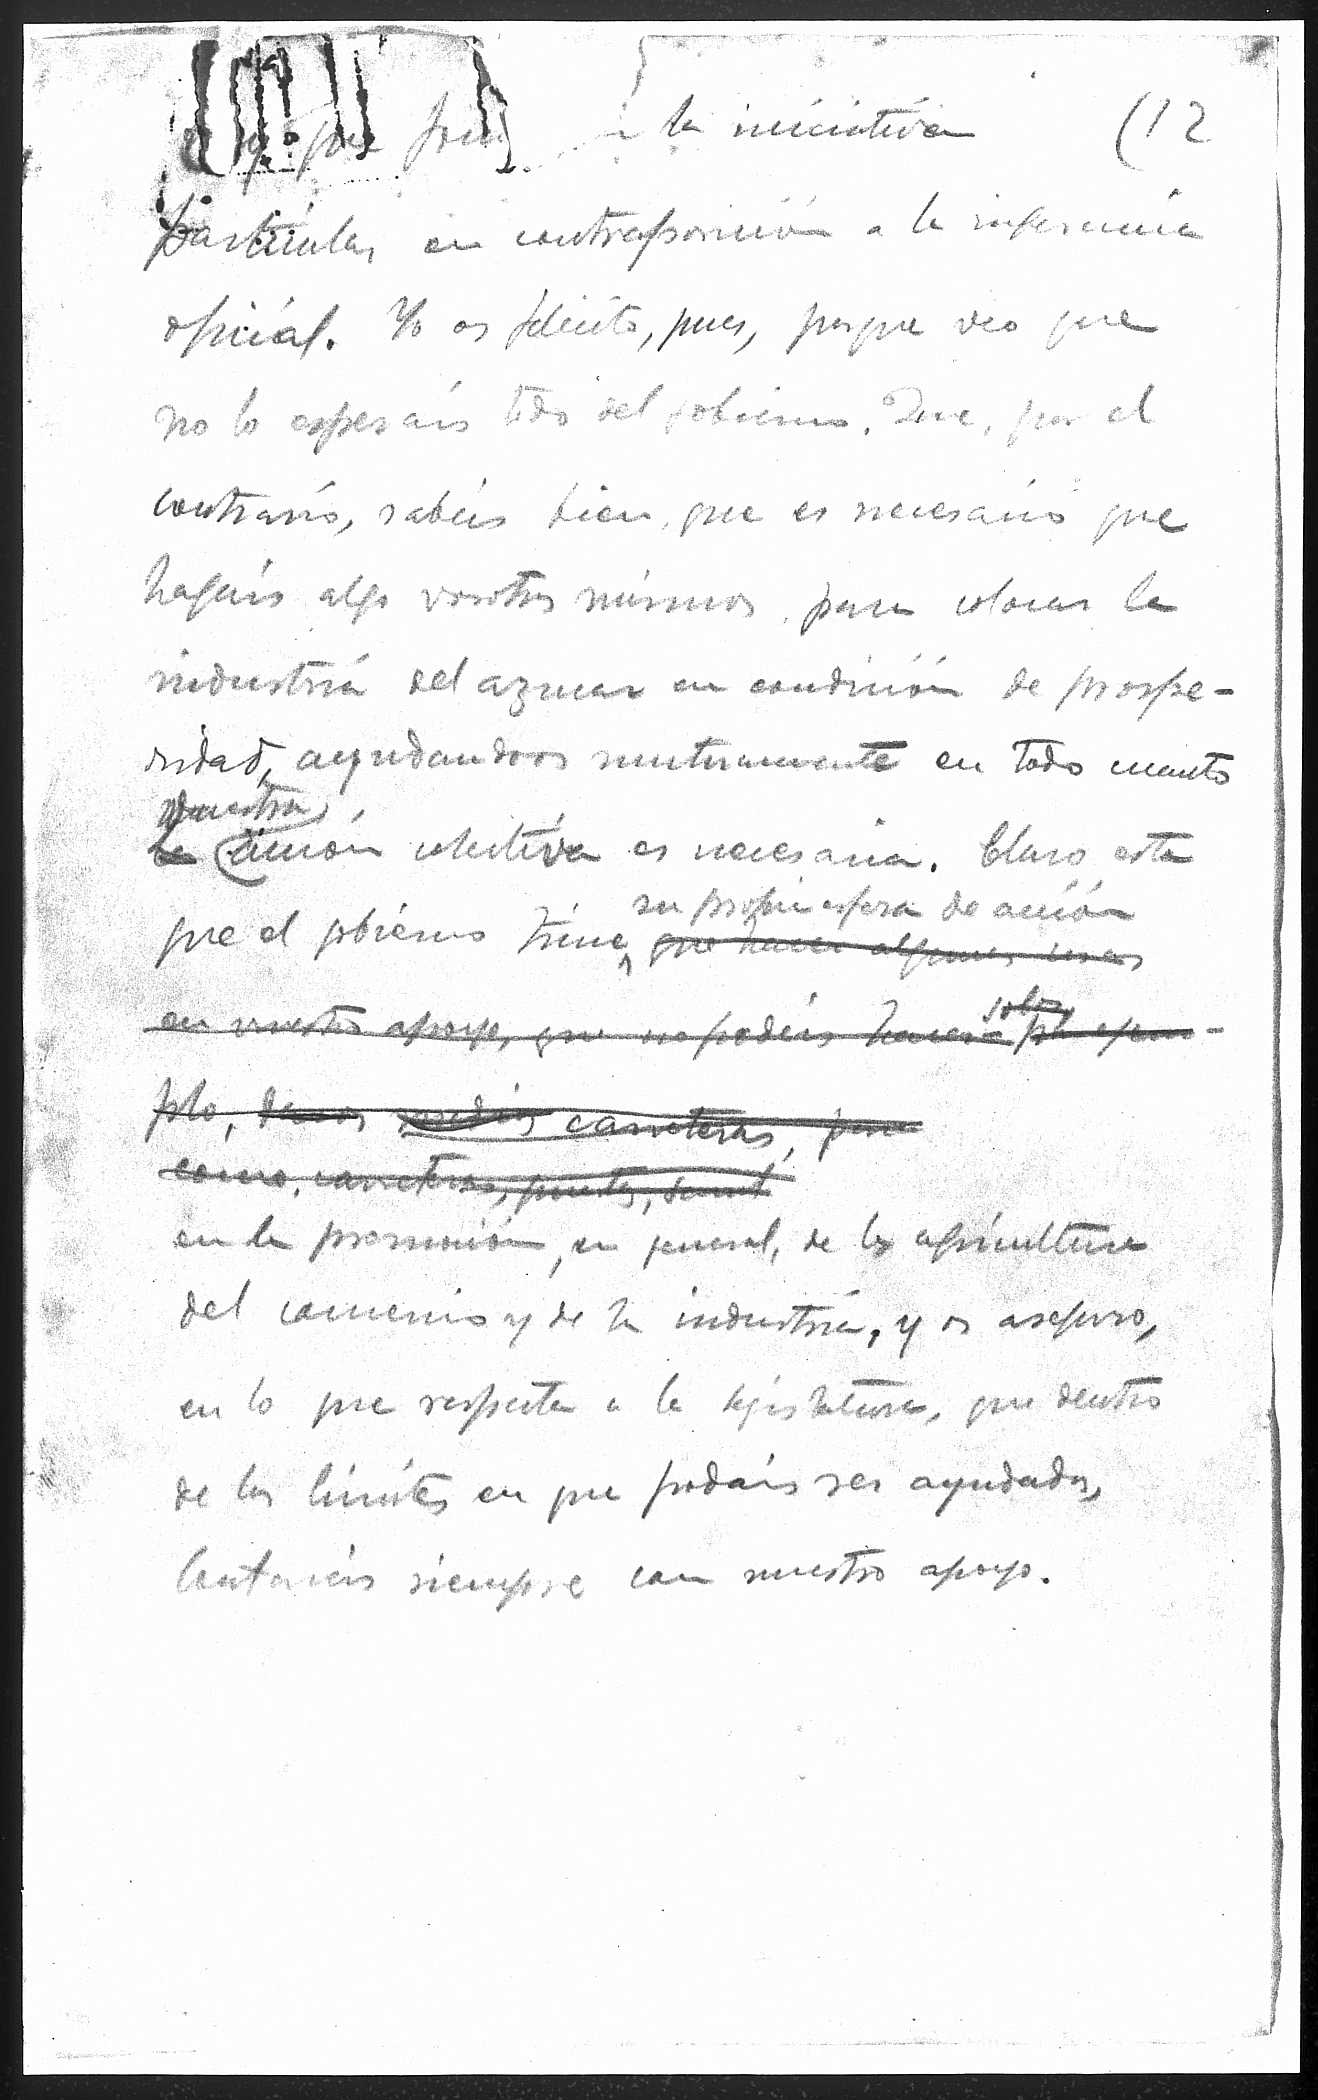 y que a la iniciativa (12
particular, en contraposición a la ingerencia
oficial. Yo os felicito, pues, porque veo que
no lo esperais todo del gobierno. Que, por el
contrario, sabéis bien, que es necesario que
hagáis algo vosotros mismos para colocar la
industria del azucar en condición de prospe-
ridad, ayudandoos mutuamente en todo cuanto
vuestra
La acción colectiva es necesaria. Claro esta
su propia esfera de acción
que el gobierno tiene que hacer algunas cosas
solos
en vuestro apoyo, que no podéis hacer por ejem-
plo, carreteras, para
como, carreteras, puertos,
en la promoción, en general, de la agricultura
del comercio y de la industria, y os aseguro,
en lo que respecta a la legislatura, que dentro
de los límites en que podáis ser ayudados,
Contaréis siempre con nuestro apoyo.